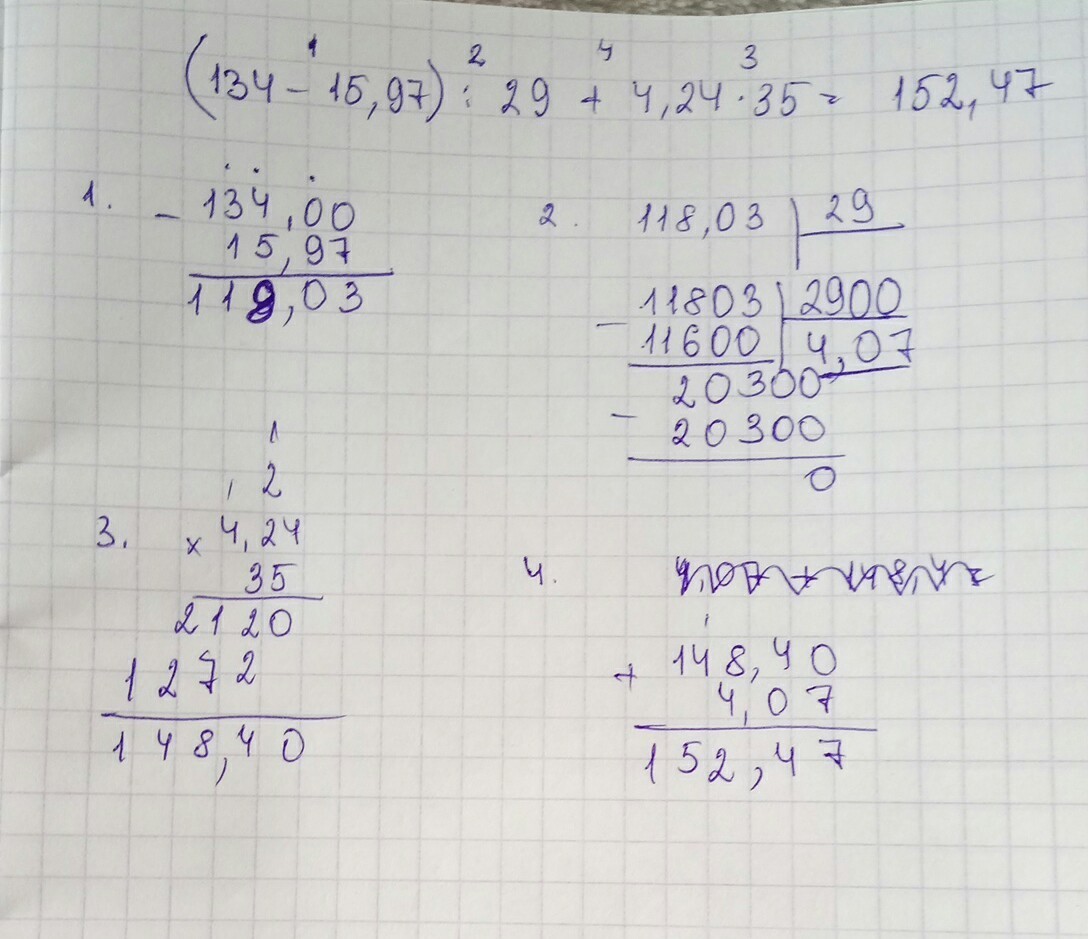 1 2 4 3
(134 - 15,97) : 29 + 4,24 · 35 = 152,47
1. - 134,00
15,97
118,03
2. 118,03 | 29
- 11803 | 2900
11600 | 4,07
20300
- 20300
0
1
, 2
3. x 4,24
35
2120
1272
148,40
4.
1
+ 148,40
4,07
152,47